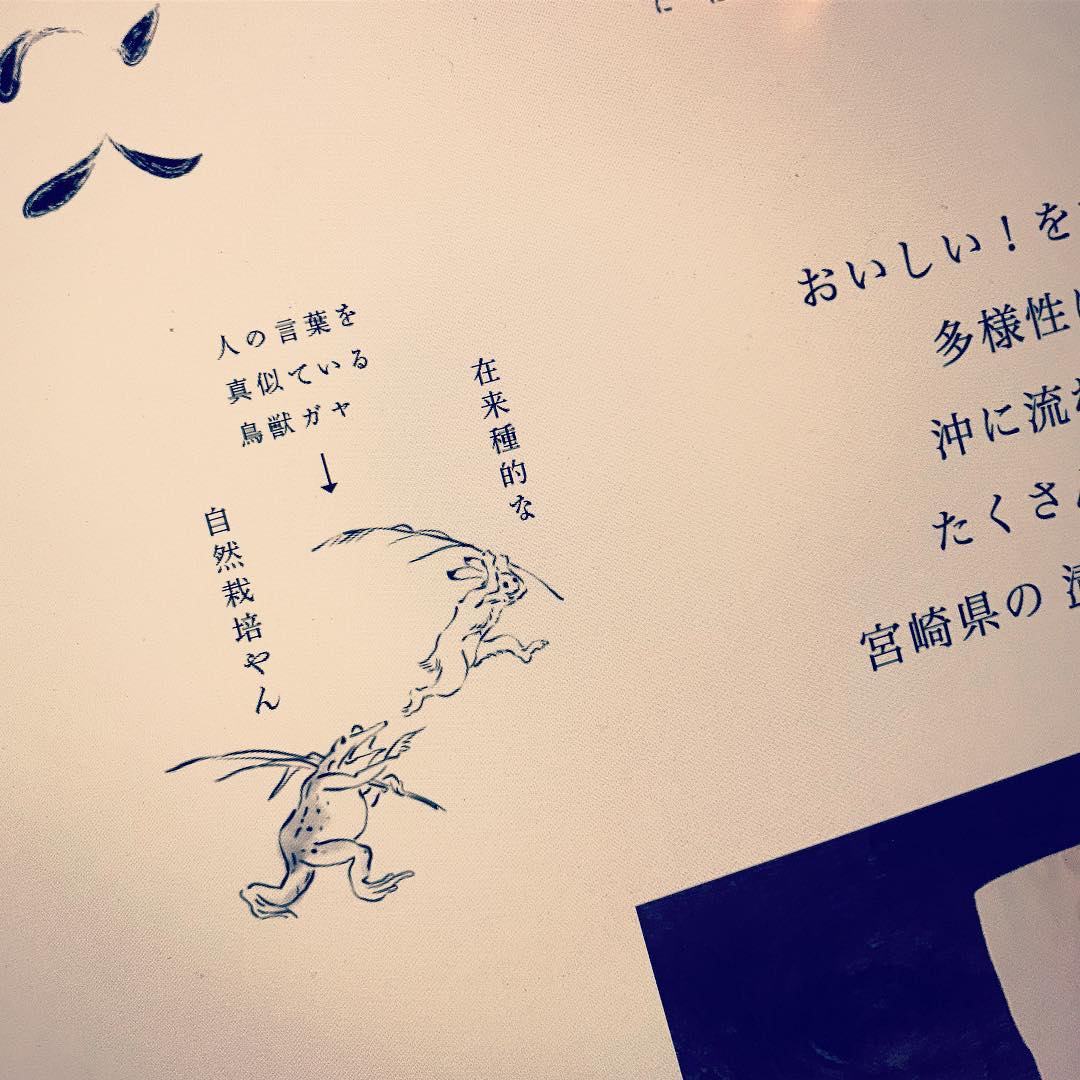 人の言葉を
真似ている
鳥獣ガヤ
↓
在来種的な
自然栽培やん
おいしい！を
多様性
沖に流
たくさ
宮崎県の